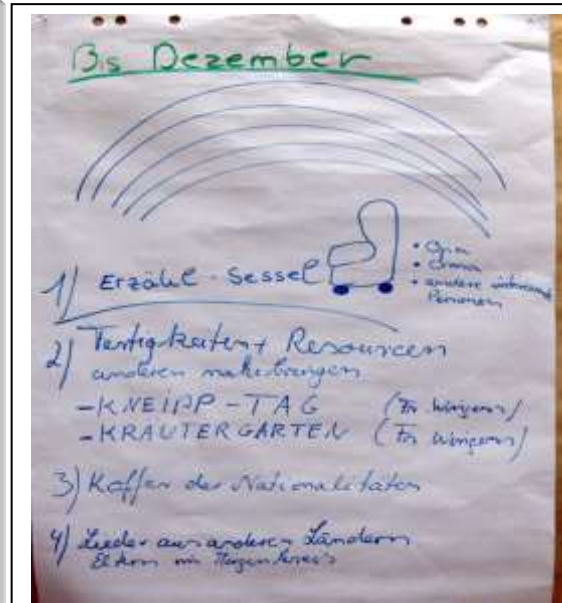 Bis Dezember
1) Erzähl-Sessel
• Opa
• Oma
• andere
Personen
2) Fertigkeiten + Resourcen
anderen nahebringen
- KNEIPP-TAG
- KRÄUTERGARTEN
3) Koffer der Nationalitäten
4) Lieder aus anderen Ländern
Eltern im Morgenkreis